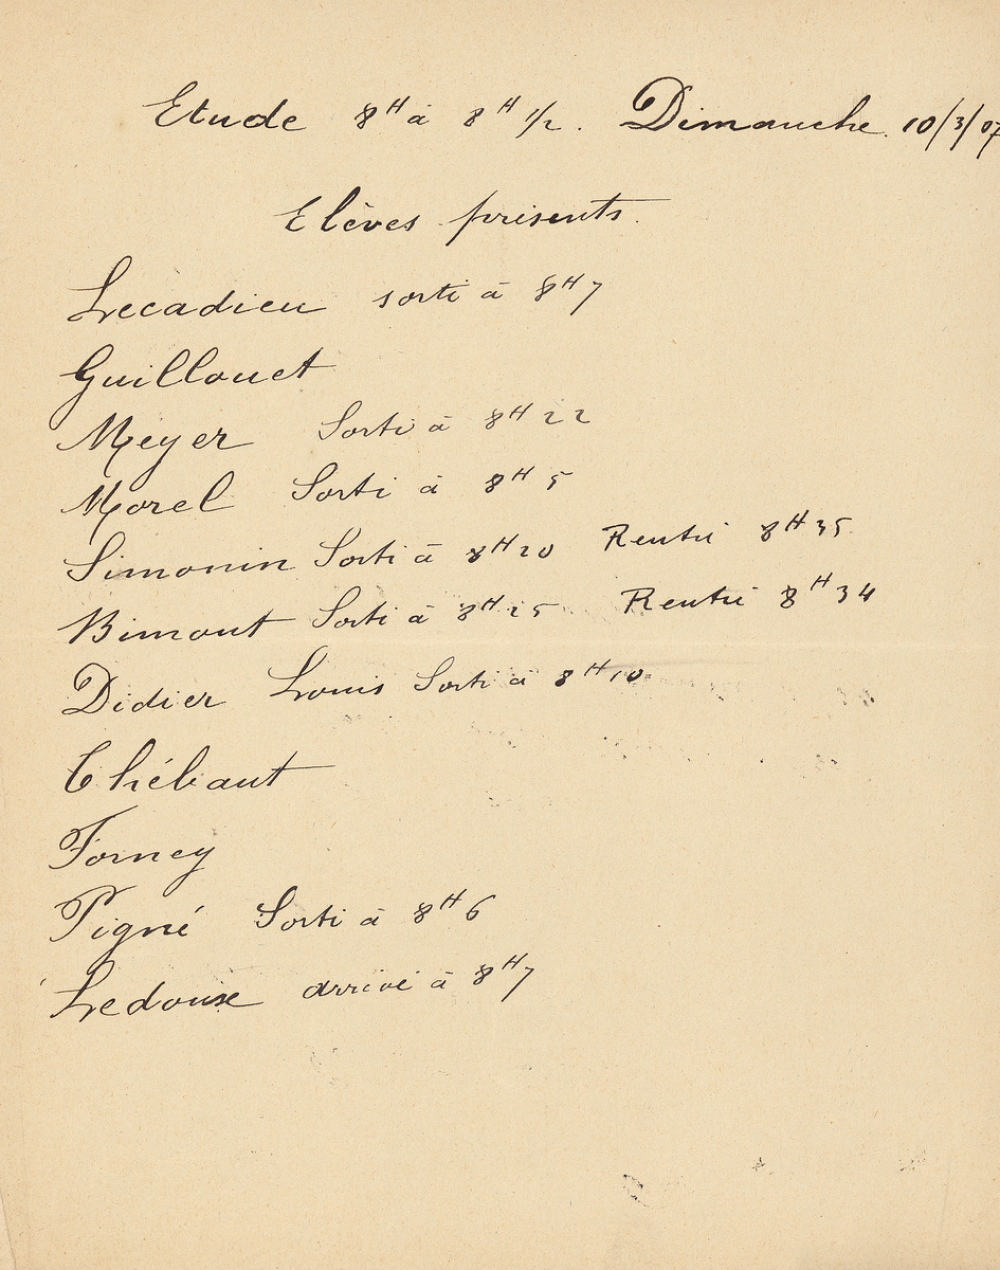 Etude 8H à 8H 1/2. Dimanche 10/3/07
Elèves présents.
Lecadieu sorti à 8H7
Guillouet
Meyer Sorti à 8H22
Morel Sorti à 8H5
Simonin Sorti à 8H20 Rentré 8H35
Bimont Sorti à 8H25 Rentré 8H34
Didier Louis Sorti à 8H10
Thébaut
Forney
Pigné Sorti à 8H6
Ledoux arrivé à 8H7